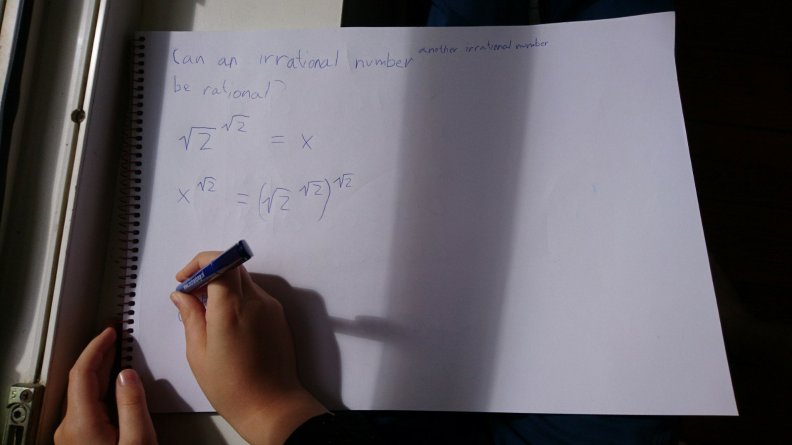 Can an irrational number ^another irrational number
be rational?
√2^√2 = x
x^√2 = (√2^√2)^√2